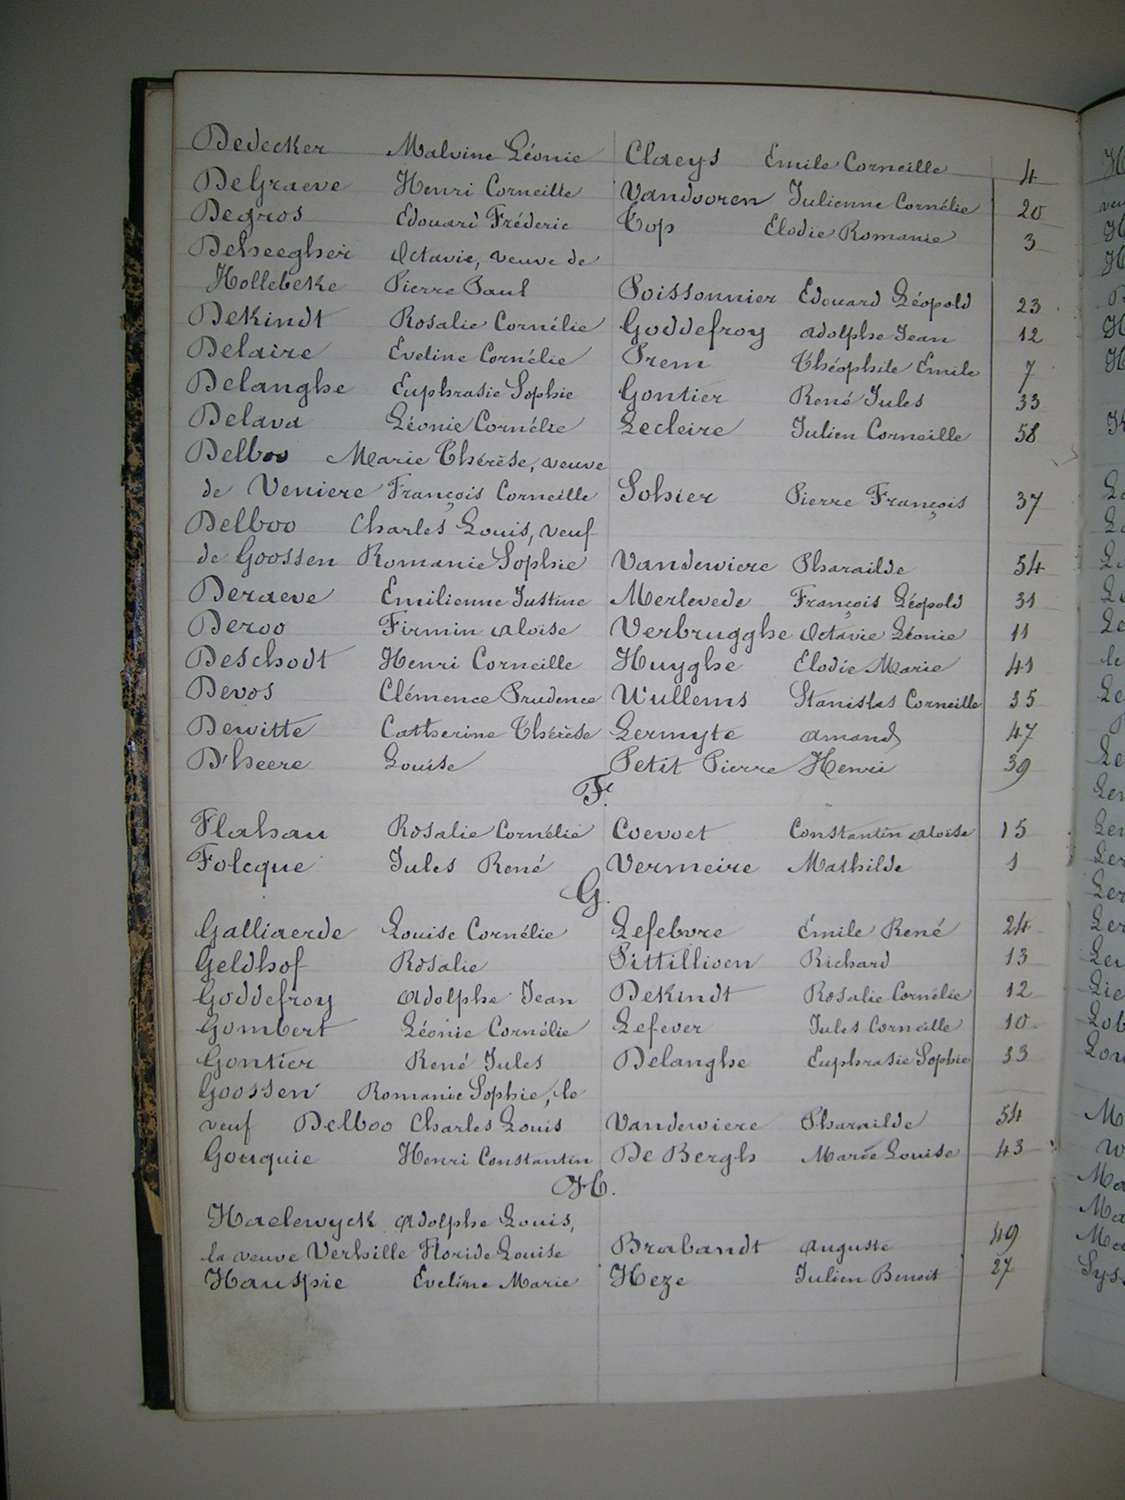 Dedecker Malvine Léonie Claeys Emile Corneille 4
DeGraeve Henri Corneille Vandooren Julienne Cornélie 20
Degros Edouard Fréderic Top Elodie Romanie 3
Deheegher Octavie, veuve de
Hollebeke Pierre Paul Poissonnier Edouard Léopold 23
DeKindt Rosalie Cornélie Goddefroy Adolphe Jean 12
Delaire Eveline Cornélie Prem Théophile Emile 7
Delanghe Euphrasie Sophie Gontier René Jules 33
Delava Léonie Cornélie Lecleire Julien Corneille 58
Delboo Marie Thérèse, veuve
de Veniere François Corneille Sohier Pierre François 37
Delboo Charles Louis, veuf
de Goossen Romanie Sophie Vandewiere Pharailde 54
Deraeve Emilienne Justine Merlevede François Léopold 31
Deroo Firmin Aloïse Verbrugghe Octavie Léonie 11
Deschodt Henri Corneille Huyghe Elodie Marie 41
Devos Clémence Prudence Wullems Stanislas Corneille 35
Dewitte Catherine Thérèse Lermyte Amand 47
D'heere Louise Petit Pierre Henri 39
F.
Flahau Rosalie Cornélie Coevoet Constantin Aloïse 15
Folcque Jules René Vermeire Mathilde 1
G.
Galliaerde Louise Cornélie Lefebvre Emile René 24
Geldhof Rosalie Pittillioen Richard 13
Goddefroy Adolphe Jean DeKindt Rosalie Cornélie 12
Gombert Léonie Cornélie Lefever Jules Corneille 10
Gontier René Jules Delanghe Euphrasie Sophie 33
Goossen Romanie Sophie, le
veuf Delboo Charles Louis Vandewiere Pharailde 54
Gouquie Henri Constantin De Bergh Marie Louise 43
H.
Haelewyck Adolphe Louis,
la veuve Verhille Floride Louise Brabandt Auguste 49
Hauspie Eveline Marie Heze Julien Benoit 27